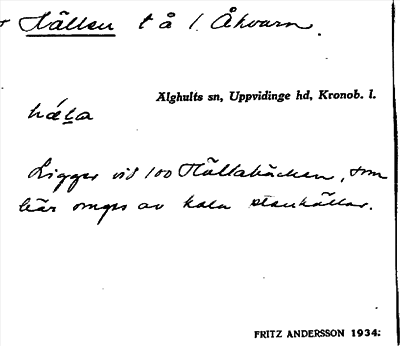 Hällen t å l. Åkvarn.
Älghults sn, Uppvidinge hd, Kronob. l.
hæ̨la
Ligger vid 100 Hällabäcken, som
här omges av kala stenhällar.
FRITZ ANDERSSON 1934.